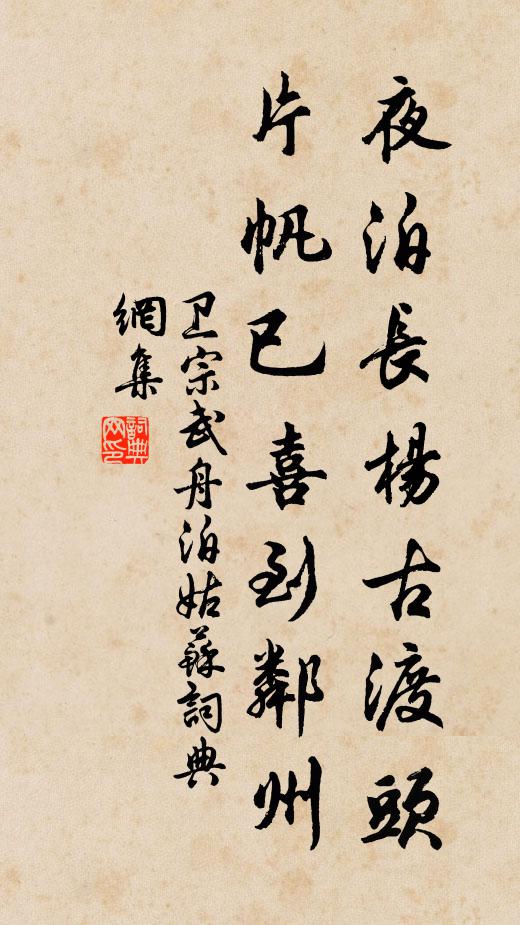 夜泊長楊古渡頭
片帆已喜到鄰州
卫宗武舟泊姑蘇詞典
網集
詞典网印